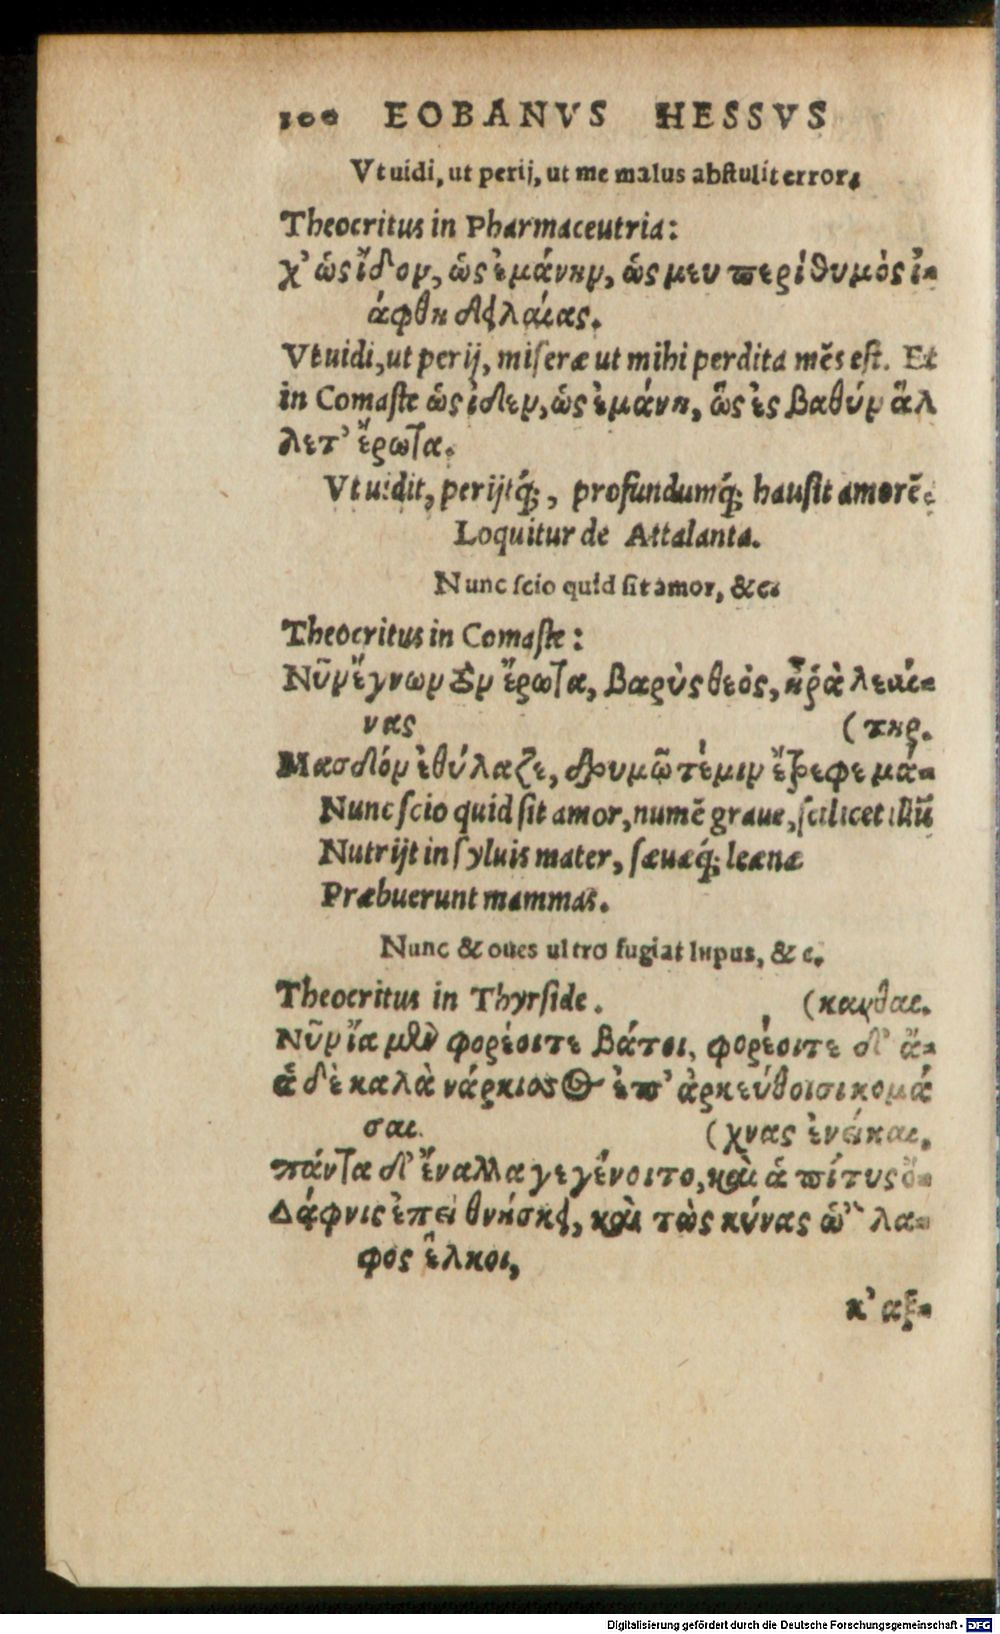 100 EOBANVS HESSVS
Vt uidi, ut perij, ut me malus abstulit error,
Theocritus in Pharmaceutria:
χ' ὡς ἴδον, ὡς ἐμάνην, ὥς μευ περὶ θυμὸς ἰ-
άφθη δειλαίας.
Vt uidi, ut perij, miseræ ut mihi perdita mẽs est. Et
in Comaste ὡς ἴδεν, ὡς ἐμάνη, ὣς ἐς βαθὺν ἅλ
λετ' ἔρωτα.
Vt uidit, perijtq́;, profundumq́; hausit amorẽ.
Loquitur de Attalanta.
Nunc scio quid sit amor, &c.
Theocritus in Comaste:
Νῦν ἔγνων τὸν ἔρωτα, βαρὺς θεὸς, ἦ ῥὰ λεαί-
νας (τηρ.
Μασδὸν ἐθύλαζε, δρυμῷ τέ μιν ἔτρεφε μά-
Nunc scio quid sit amor, numẽ graue, scilicet illũ
Nutrijt in syluis mater, sæuæq́; leænæ
Præbuerunt mammas.
Nunc & oues ultro fugiat lupus, & c.
Theocritus in Thyrside. (κανθαι.
Νῦν ἴα μὲν φορέοιτε βάτοι, φορέοιτε δ' ἄ-
ἁ δὲ καλὰ νάρκισσος ἐπ' ἀρκεύθοισι κομά
σαι. (χνας ἐνείκαι.
πάντα δ' ἔναλλα γεγένοιτο, καὶ ἁ πίτυς ὄ-
Δάφνις ἐπεὶ θνήσκει, καὶ τὼς κύνας ὡ' λα-
φος ἕλκοι,
κ' αξ-
Digitalisierung gefördert durch die Deutsche Forschungsgemeinschaft - DFG